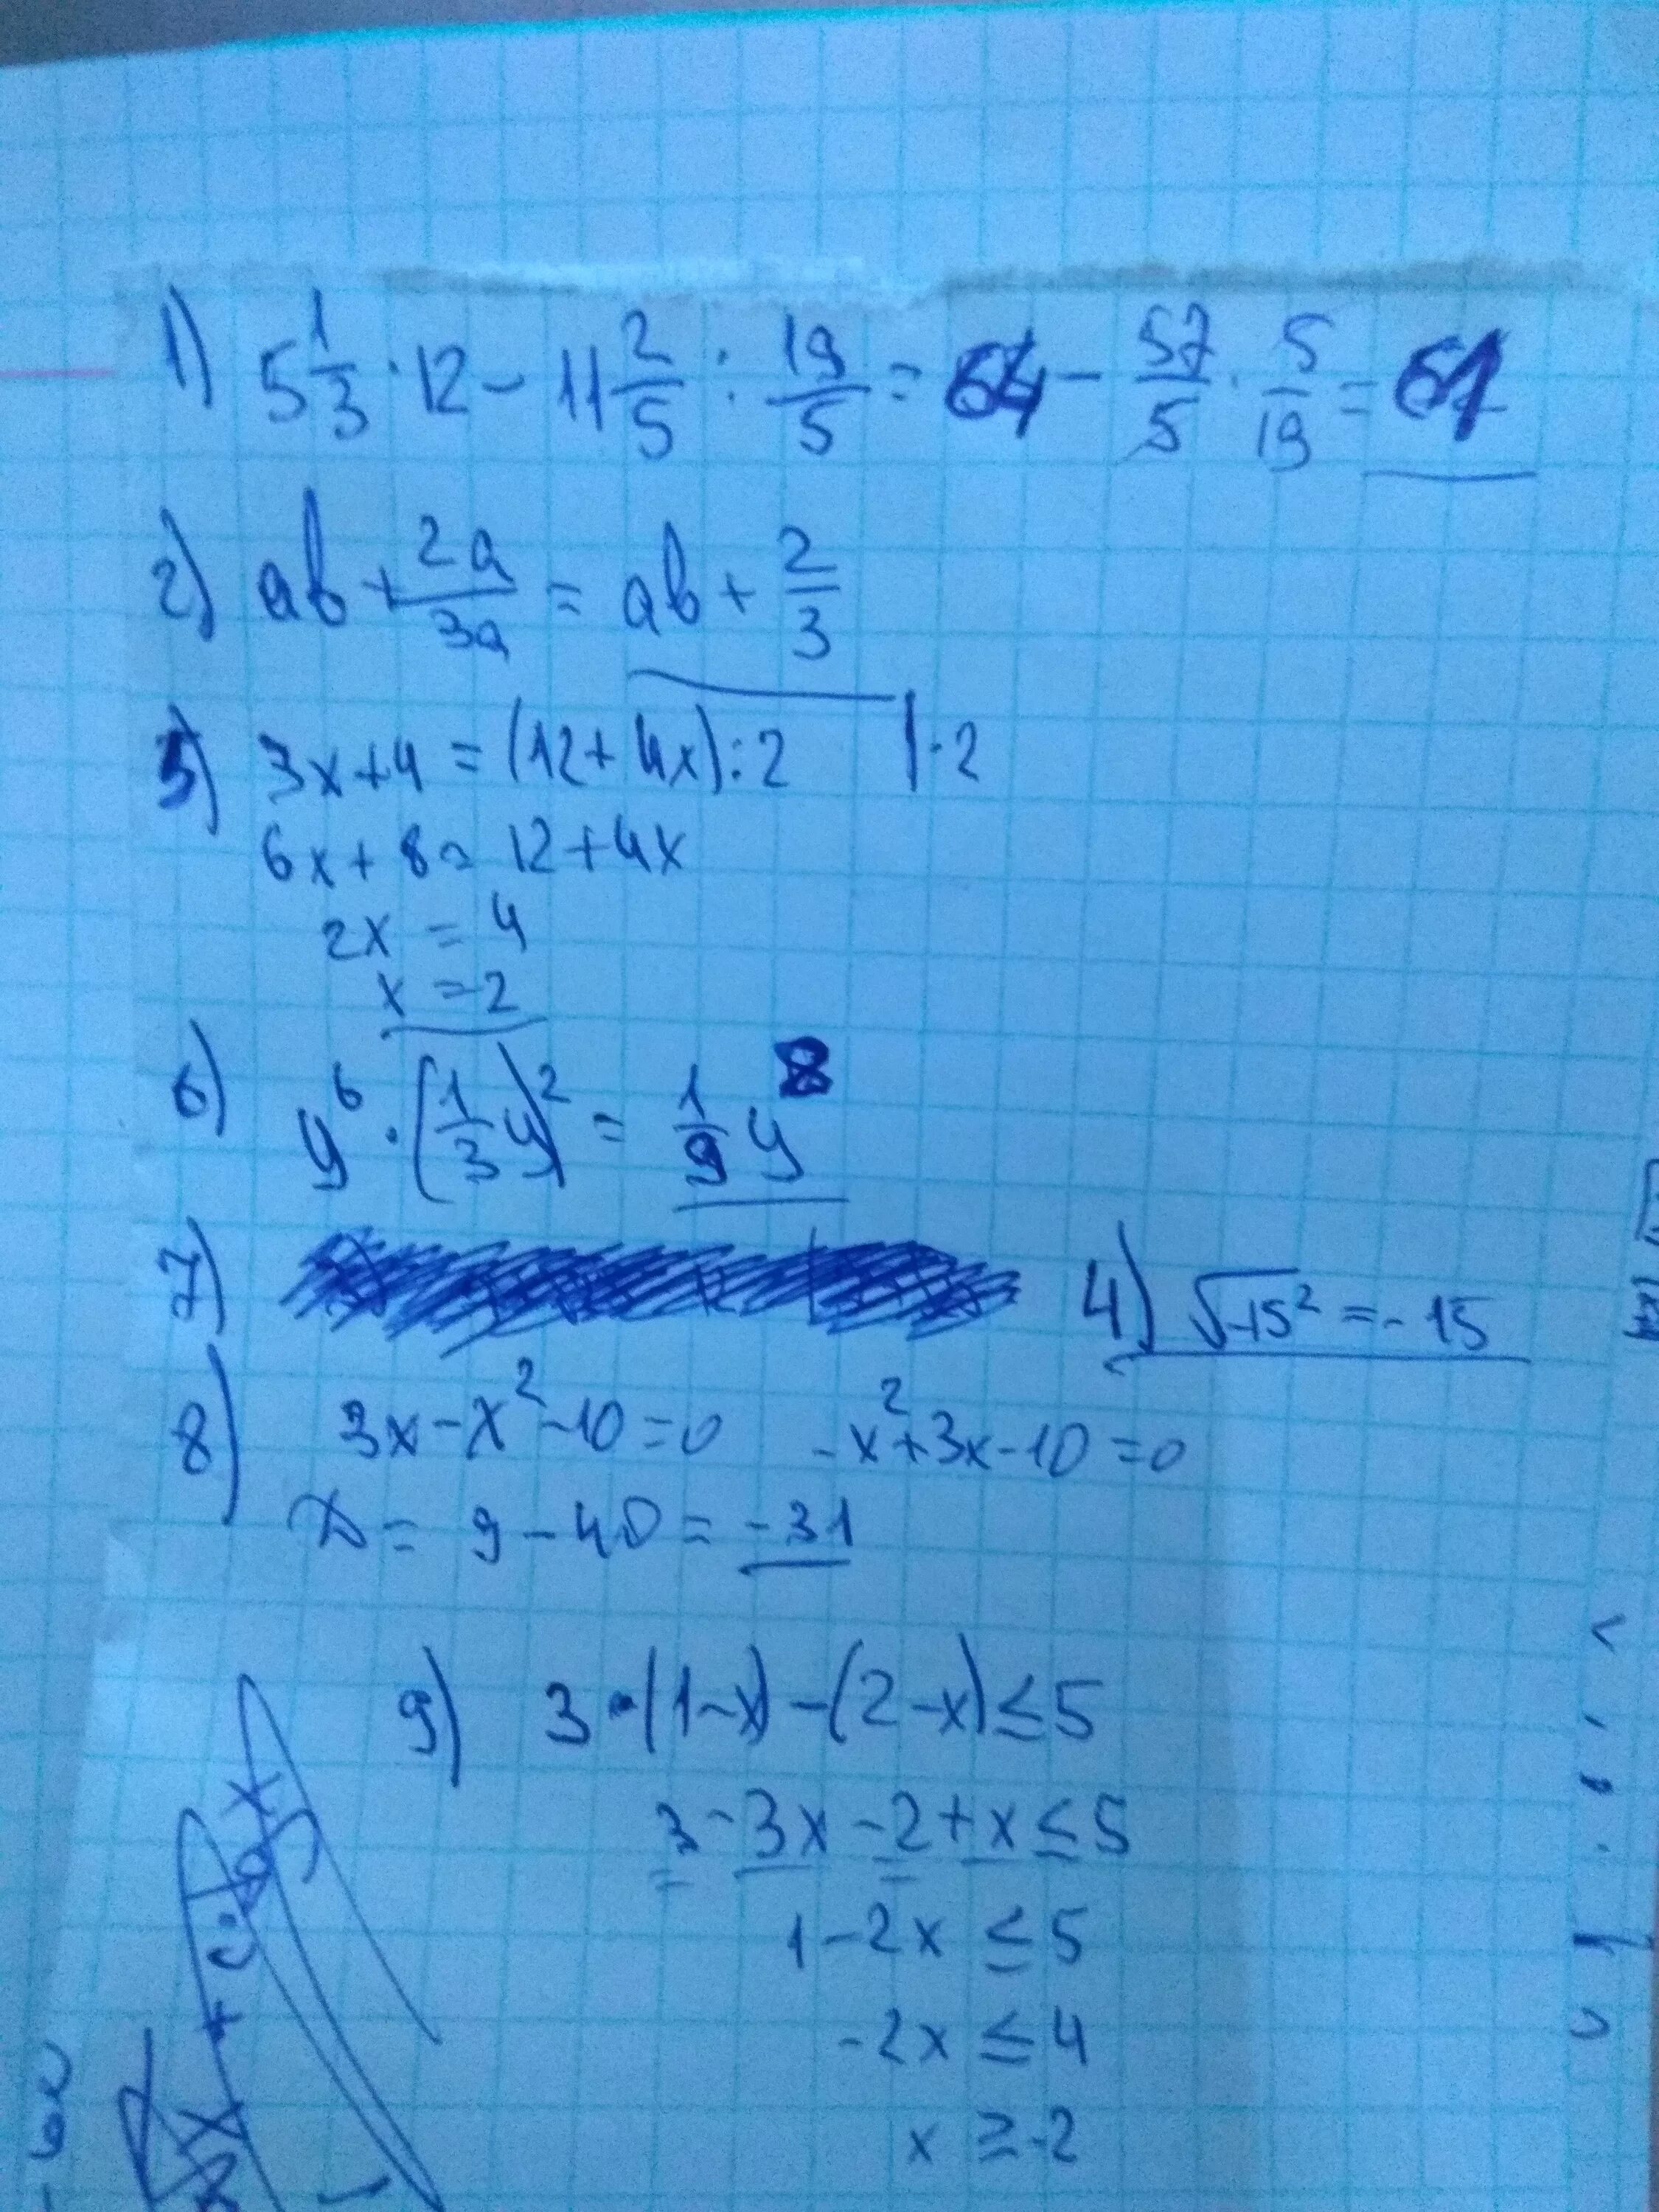 1) 5 1/3 · 12 - 11 2/5 : 19/5 = 64 - 57/5 · 5/19 = 61
2) ab + 2a/3a = ab + 2/3
5) 3x+4 = (12+4x):2 |·2
6x+8 = 12+4x
2x = 4
x = 2
6) y⁶ · (1/3 y)² = 1/9 y⁸
7)
4) √-15² = -15
8) 3x - x² - 10 = 0 -x² + 3x - 10 = 0
D = 9 - 40 = -31
9) 3·(1-x) - (2-x) ≤ 5
3 - 3x - 2 + x ≤ 5
1 - 2x ≤ 5
-2x ≤ 4
x ≥ -2